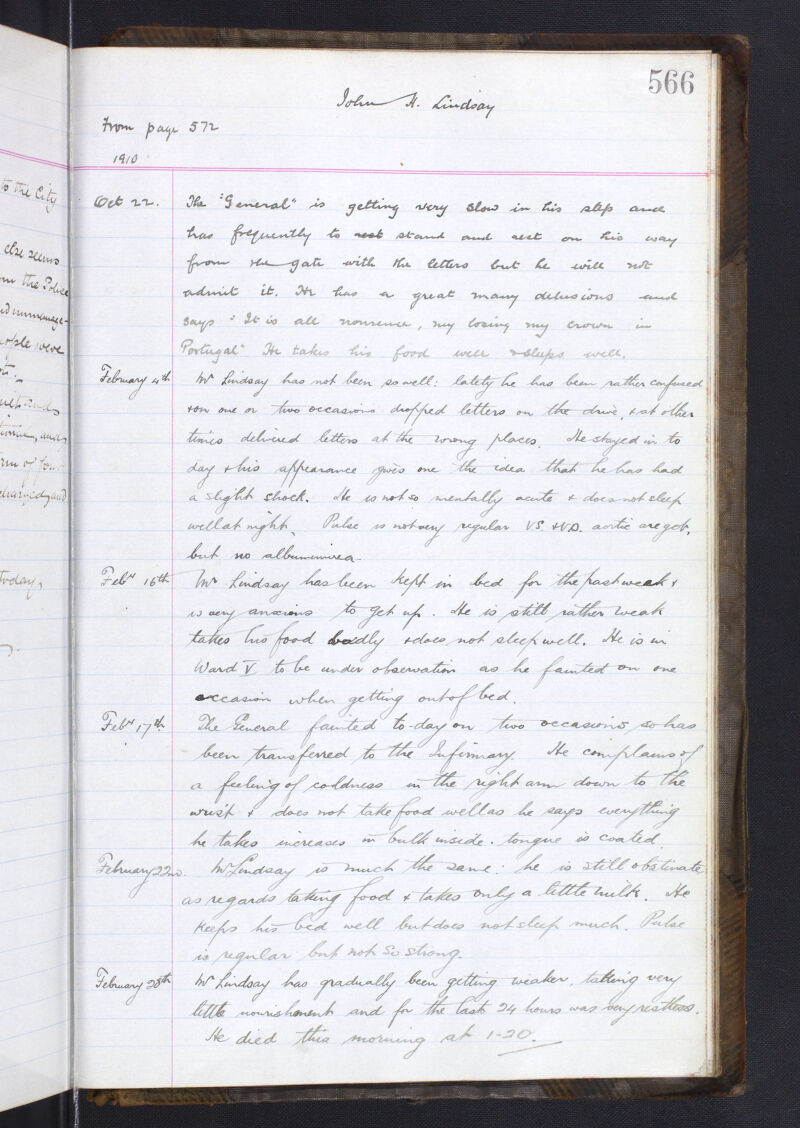 566
John H. Lindsay
From page 572
1910
Oct 22. The "General" is getting very slow in his step and
has frequently to rest stand and rest on his way
from the gate with the letters but he will not
admit it. He has a great many delusions and
says "It is all nonsense, my losing my crown in
Portugal" He takes his food well & sleeps well.
February 4th Mr Lindsay has not been so well: lately he has been rather confused
& on one or two occasions dropped letters on the drive, & at other
times delivered letters at the wrong places. He stayed in to
day & his appearance gives one the idea that he has had
a slight shock. He is not so mentally acute & does not sleep
well at night. Pulse is not very regular V.S. & V.D. aortic are got,
but no albuminurea.
Feby 16th Mr Lindsay has been kept in bed for the past week &
is very anxious to get up. He is still rather weak
takes his food badly & does not sleep well. He is in
Ward V to be under observation as he fainted on one
occasion when getting out of bed.
Feby 17th The General fainted to-day on two occasions so has
been transferred to the Infirmary. He complains of
a feeling of coldness in the right arm down to the
wrist & does not take food well as he says everything
he takes increases in bulk inside. tongue is coated.
February 22nd Mr Lindsay is much the same: he is still obstinate
as regards taking food & takes only a little milk. He
keeps his bed well but does not sleep much. Pulse
is regular but not so strong.
February 28th Mr Lindsay has gradually been getting weaker, taking very
little nourishment and for the last 24 hours was very restless.
He died this morning at 1-20.
to the City
else seems
the Police
people were
and
today,